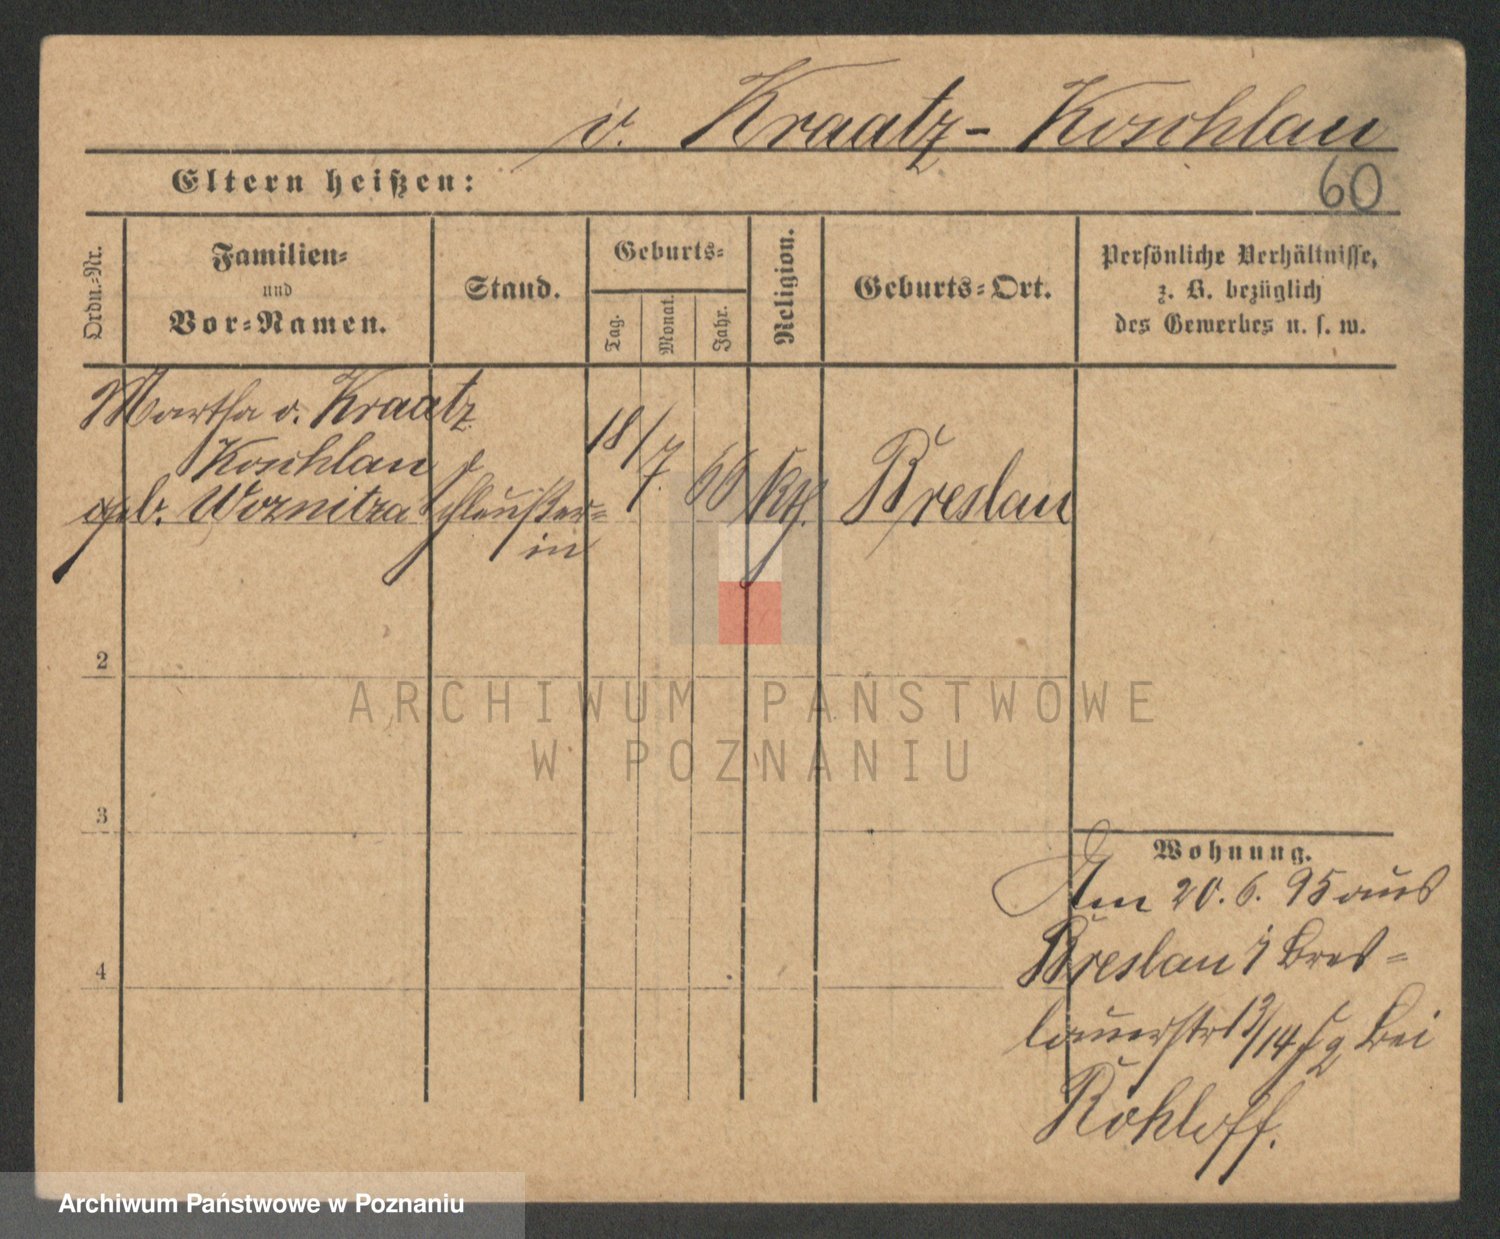 v. Kraatz-Koschlau
Eltern heißen:
60
Ordn.-Nr.
Familien-
und
Vor-Namen.
Stand.
Geburts-
Tag.
Monat.
Jahr.
Religion.
Geburts-Ort.
Persönliche Verhältnisse,
z. B. bezüglich
des Gewerbes u. s. w.
Martha v. Kraatz
Koschlau
geb. Woznitza
18/7. 66
kth.
Breslau
in
2
3
4
Wohnung.
Am 20. 6. 95 aus
Breslau Bres-
lauerstr 13/14 bei
Rohloff.
ARCHIWUM PAŃSTWOWE
W POZNANIU
Archiwum Państwowe w Poznaniu